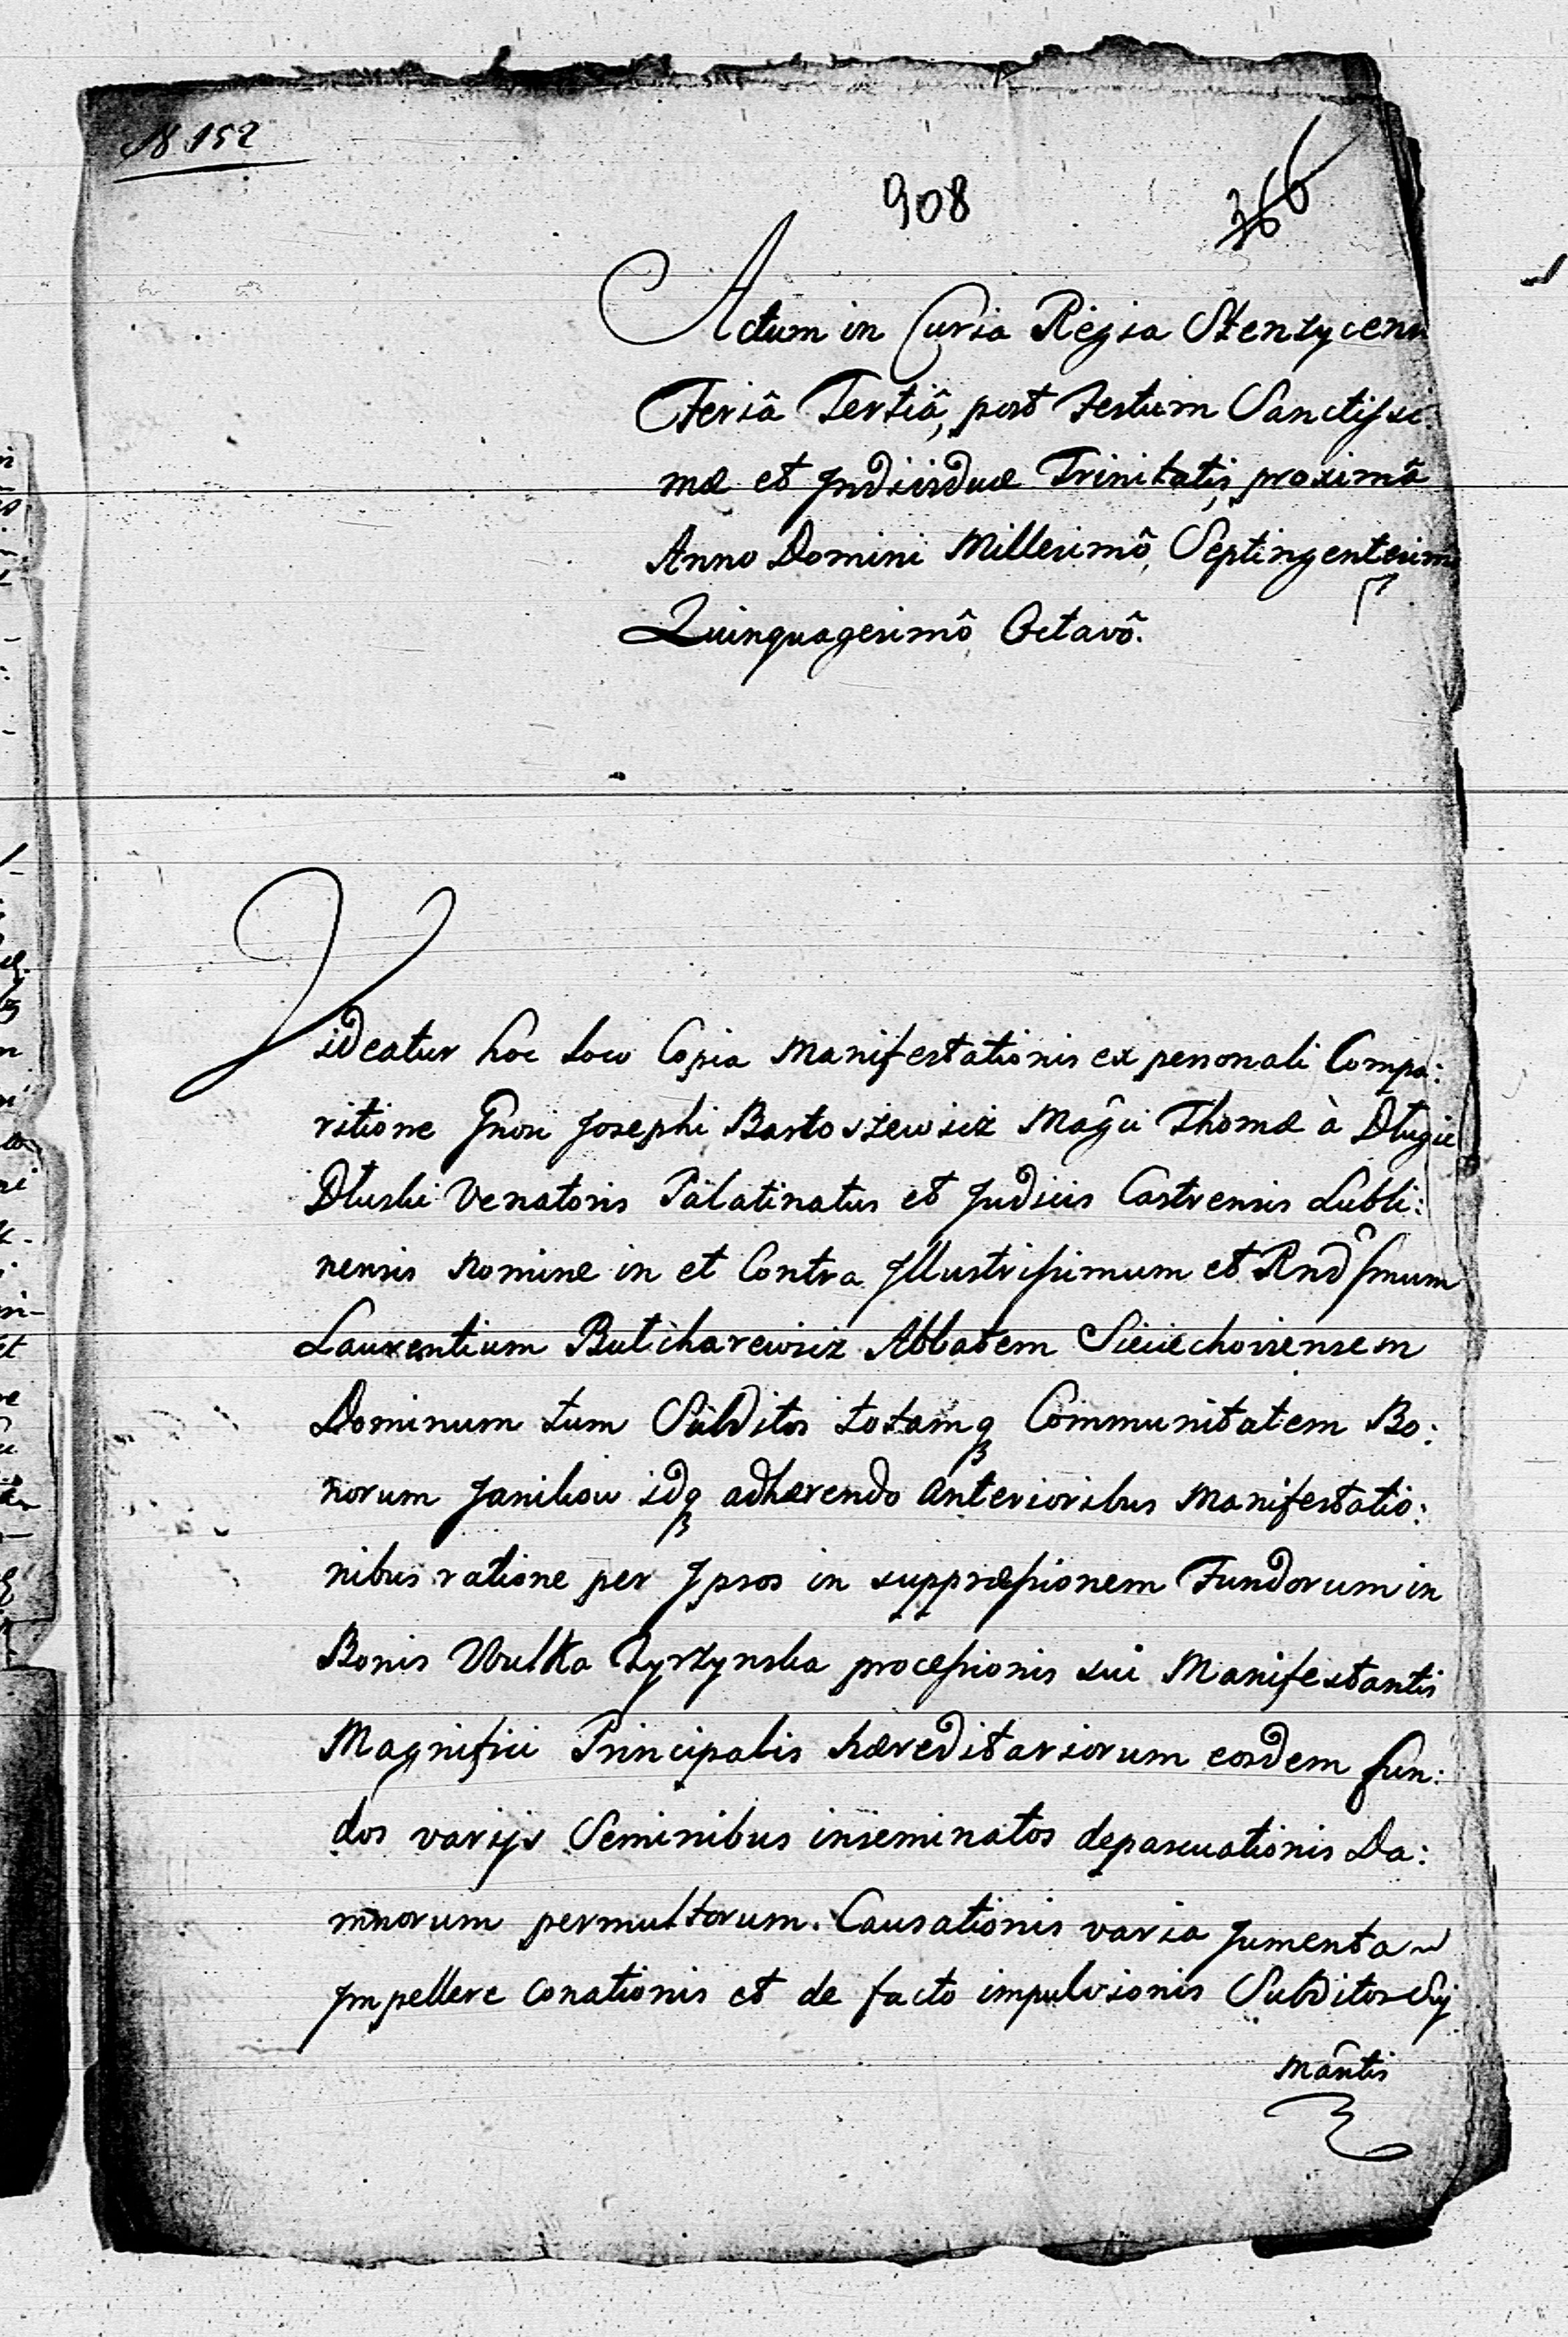 18 152
908
366
Actum in Curia Regia Stenzycen
Feriâ Tertiâ, post Festum Sanctissi
mæ et Jndividuæ Trinitatis, proximâ
Anno Domini Millesimô, Septingentesimo
Quinquagesimô Octavô.
Videatur hôc Loco Copia Manifestationis ex personali Compa:
ritione Gnosi Josephi Bartoszewicz Magci Thomæ à Długie
Dłuski Venatoris Palatinatus et Judicis Castrensis Lubli:
nensis Nomine in et Contra Jllustrissimum et Rndssmum
Laurentium Butcharewicz Abbatem Sieciechoviensem
Dominum tum Subditos totamq Communitatem Bo:
norum Janikow idq adhærendo anterioribus Manifestatio:
nibus ratione per Jpsos in suppræssionem Fundorum in
Bonis Wulka Zyrzynska processionis sui Manifestantis
Magnifici Principalis hæreditariorum eosdem fun:
dos varijs Seminibus inseminatos depascuationis Da:
mnorum permultorum. Causationis varia Jumenta
Jmpellere conationis et de facto impulsionis Subditos Sui
Mântis